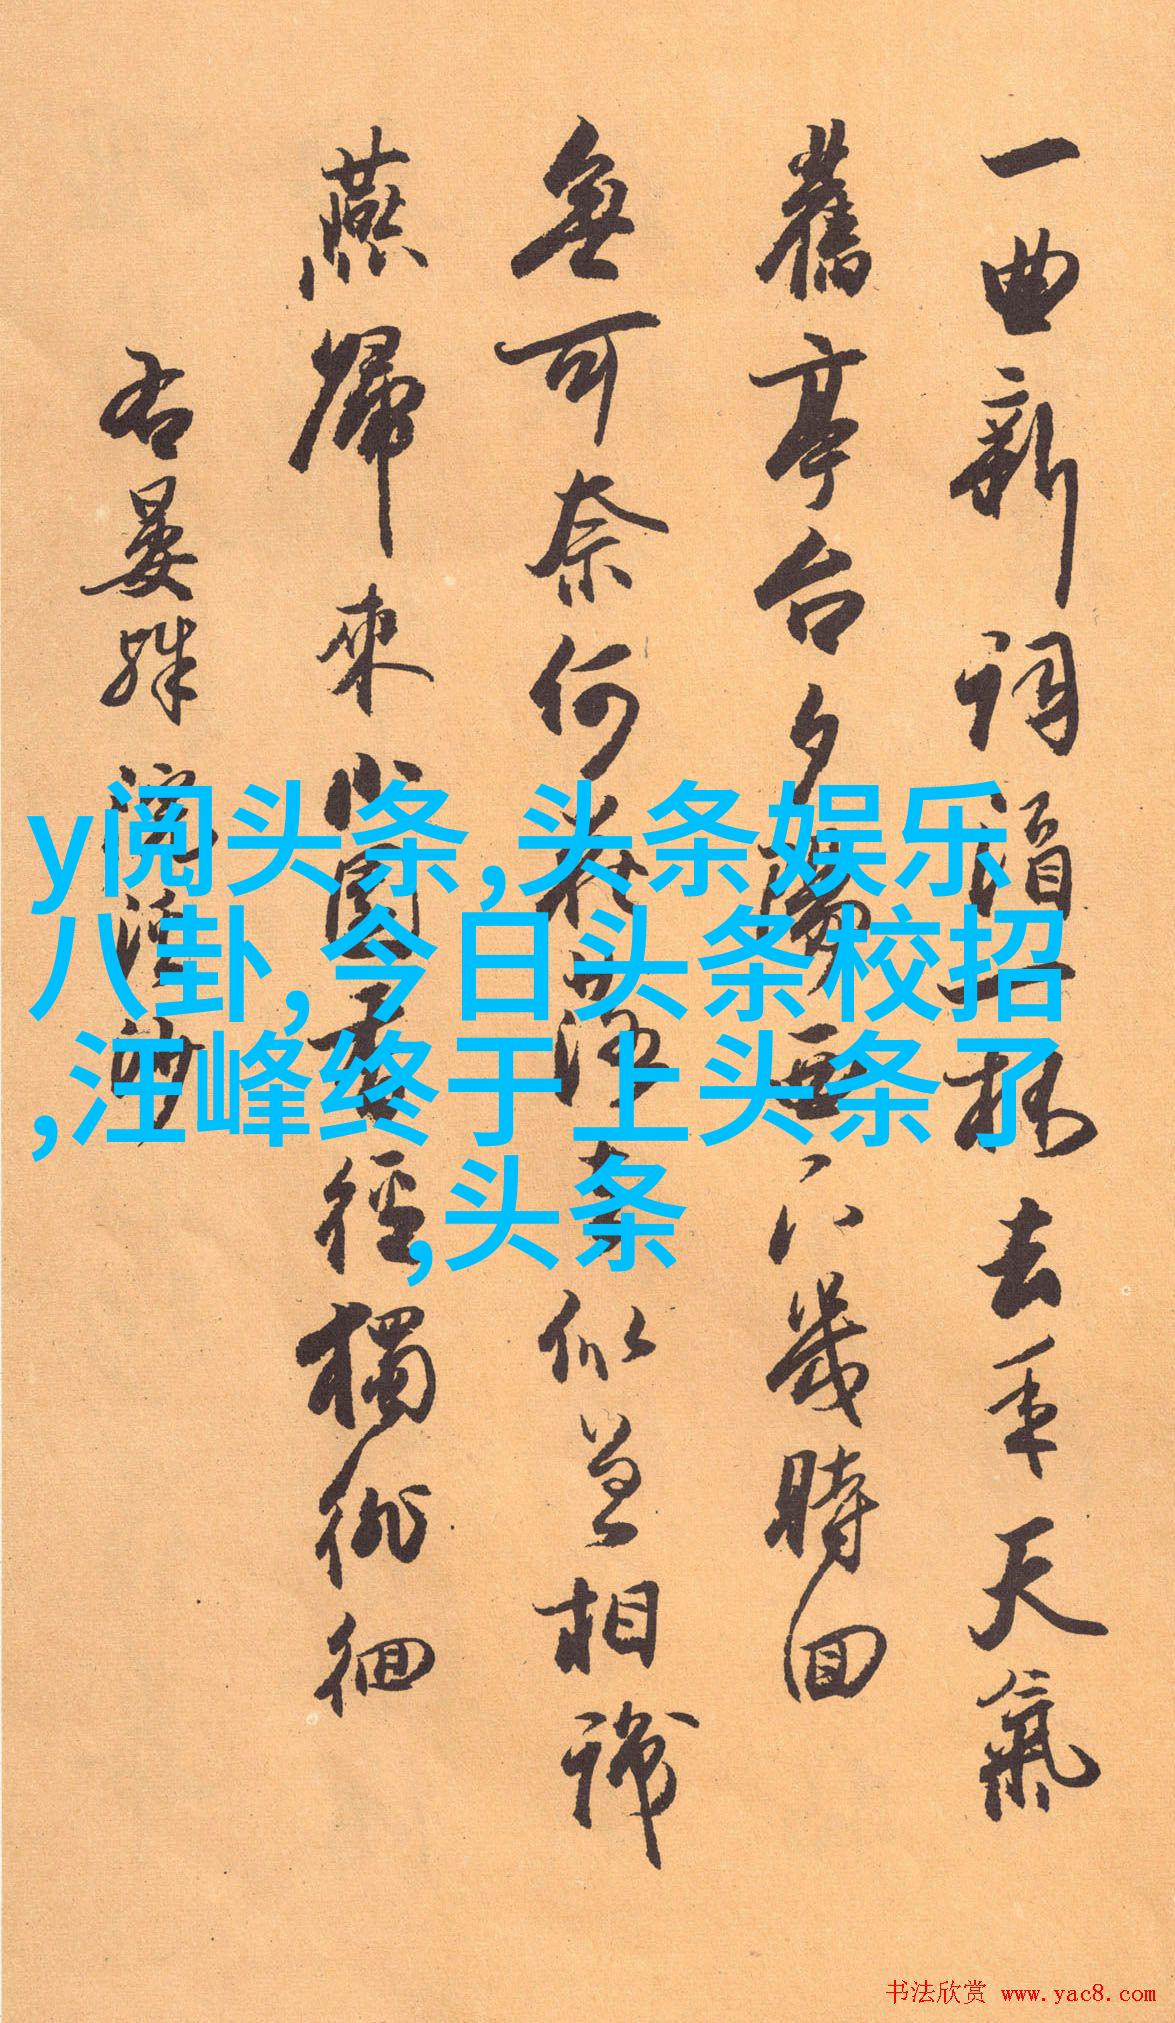 一曲新詞酒一杯去年天氣
舊亭台夕陽西下幾時回
無可奈何花落去似曾相識
燕歸來小園香徑獨徘徊
右晏殊浣溪沙
y阅头条,头条娱乐
八卦,今日头条校招
,汪峰终于上头条了
,头条
书法欣赏 www.yac8.com